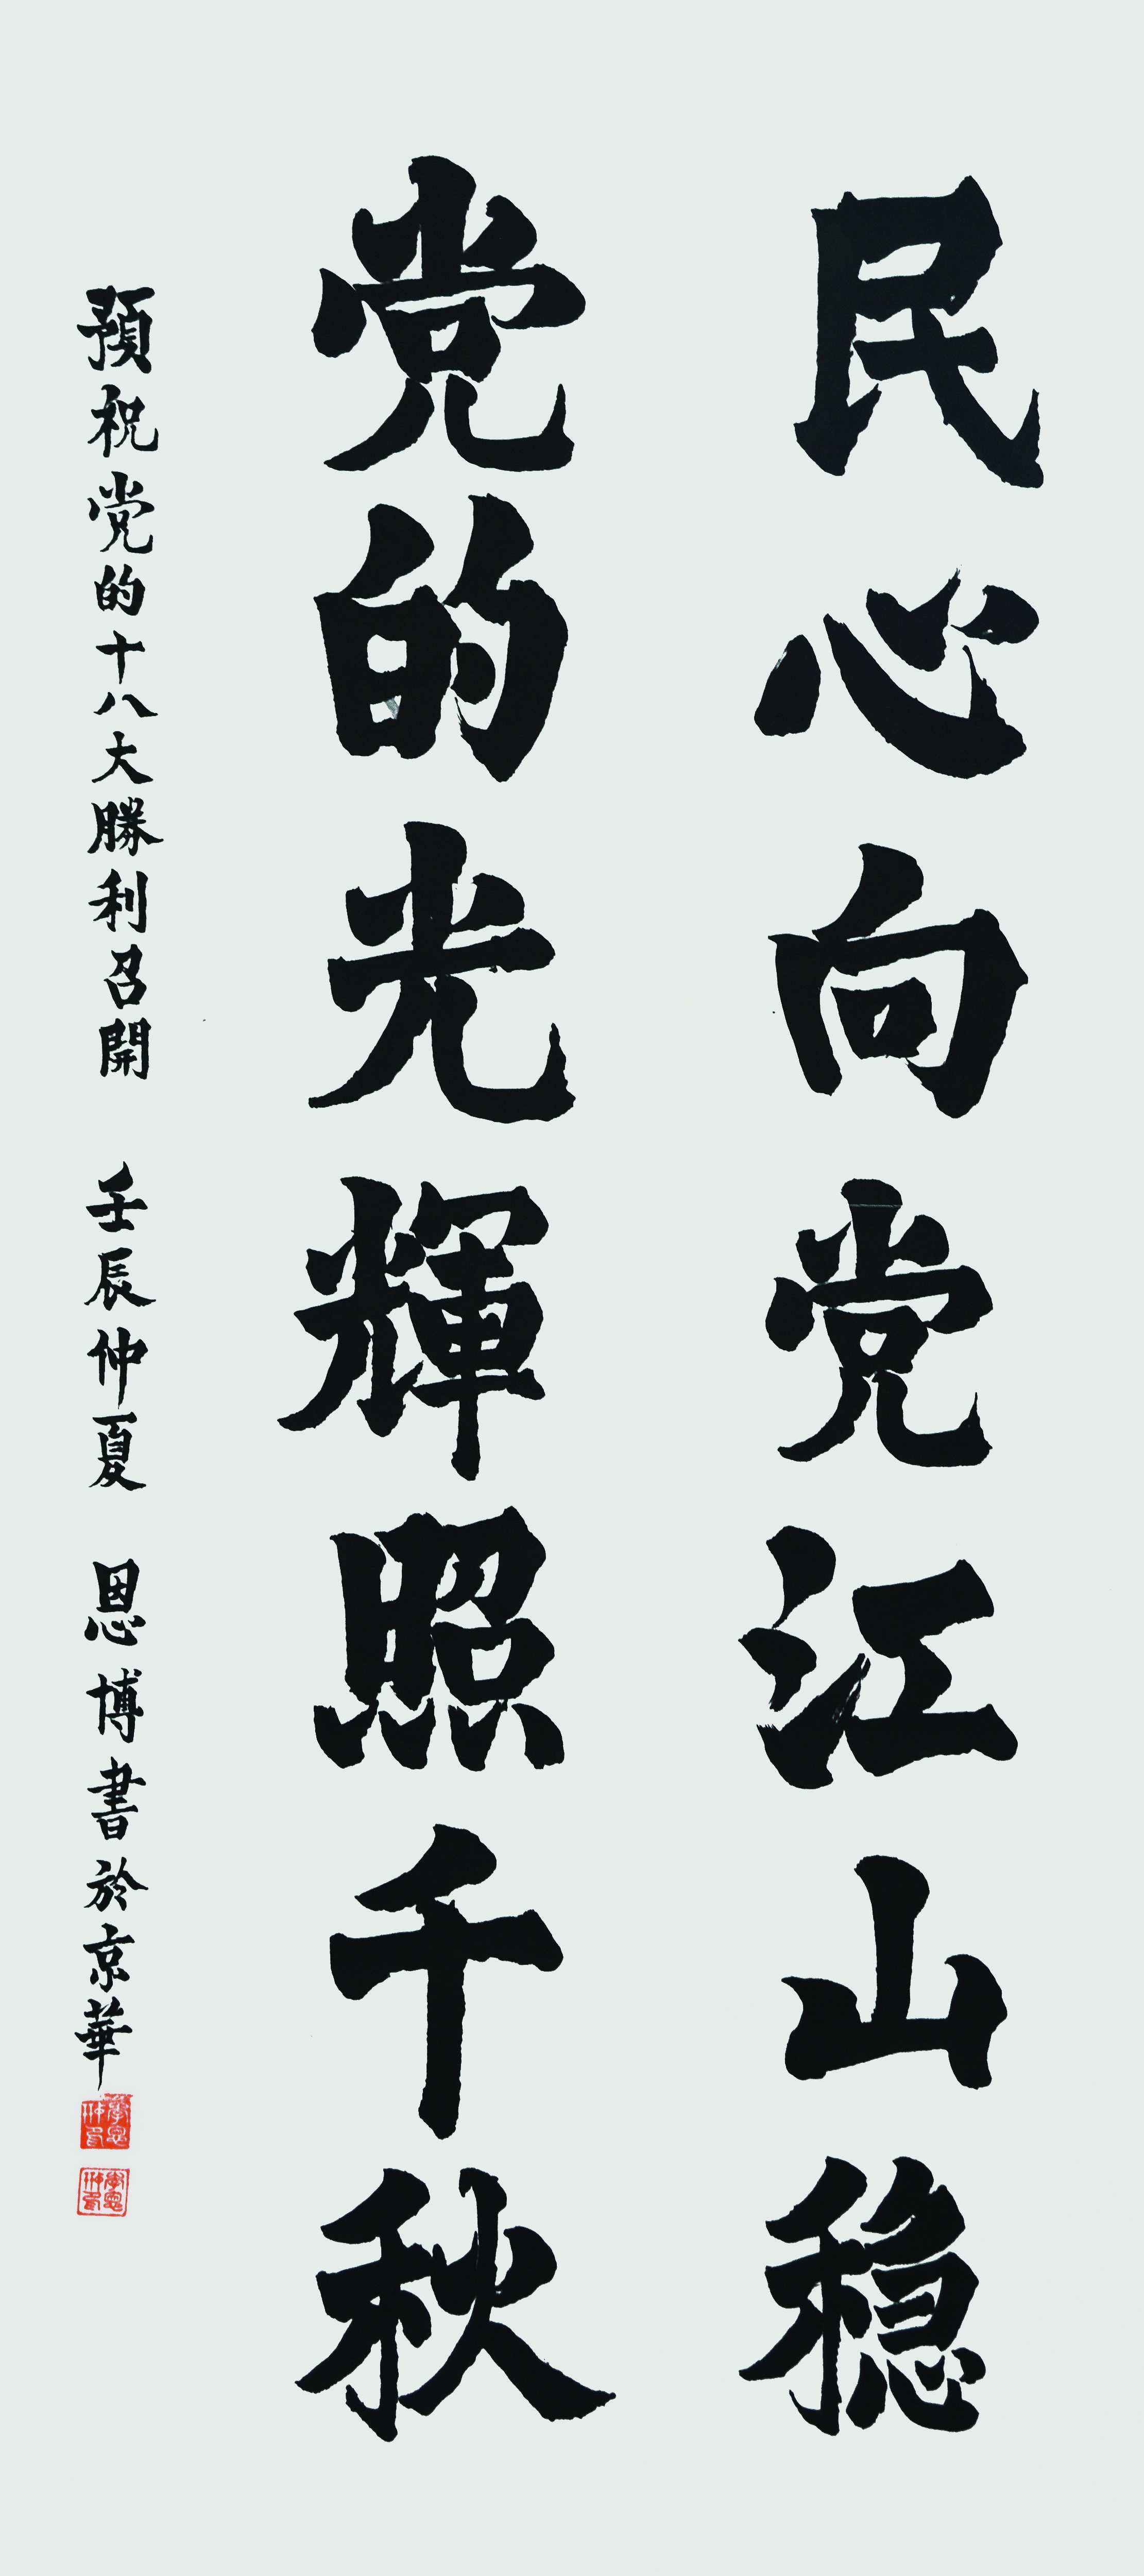 民心向党江山稳
党的光輝照千秋
預祝党的十八大勝利召開 壬辰仲夏 恩博書於京華